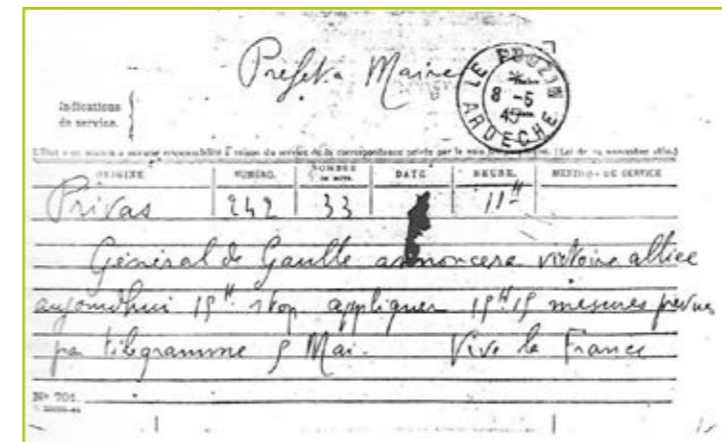 Préfet à Maire
LE POUZIN
8 -5
45
ARDECHE
Indications
de service.
L'État n'est soumis à aucune responsabilité à raison du service de la correspondance privée par la voie télégraphique. (Loi du 29 novembre 1850.)
ORIGINE NUMÉRO. NOMBRE DE MOTS. DATE HEURE. MENTIONS DE SERVICE
Privas 242 33 11H
Général de Gaulle annoncera victoire alliée
aujourdhui 15H stop appliquer 15H15 mesures prévues
par télégramme 5 Mai. Vive la France
No 701.